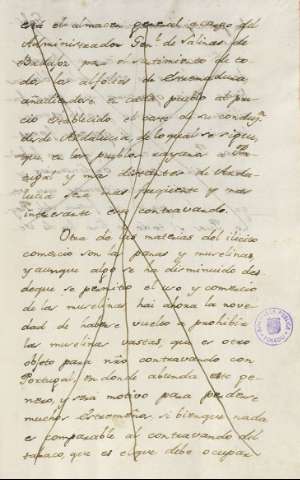 está el almacen general a cargo del
Administrador Gen.l de Salinas de
Badajoz para el surtimiento de to-
dos los alfolies de Extremadura,
añadiendose en cada pueblo al pre-
cio establecido el costo de su conduc.n
desde Andalucia, de lo qual se sigue,
que en los pueblos cercanos a Por-
tugal y mas distantes de Anda-
lucia sea mas freqüente y mas
interesante este contravando.
Otra de las materias del ilicito
comercio son las panas y muselinas,
y aunque algo se ha disminuido des-
de que se permitio el uso y comercio
de las muselinas hai ahora la nove-
dad de haberse vuelto a prohibir
las muselinas vastas, que es otro
objeto para não contravando con
Portugal, en donde abunda este ge-
nero, y será motivo para perderse
muchos Extremeños; si bien que nada
es comparable al contravando del
tabaco, que es el que debe ocupar
BIBLIOTECA PUBLICA
TOLEDO